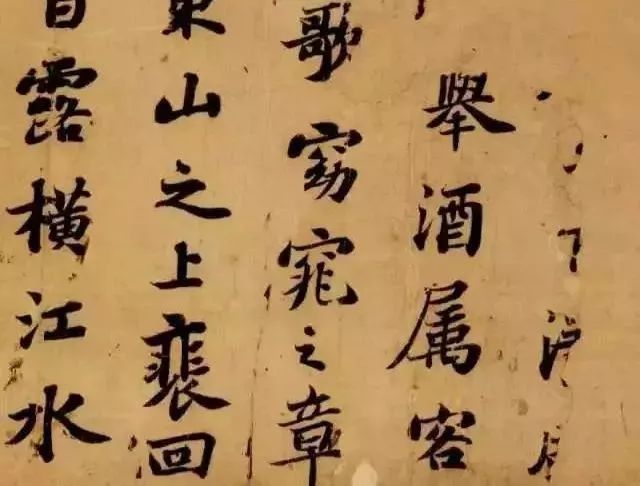 舉酒属客
歌窈窕之章
東山之上裴回
白露横江水